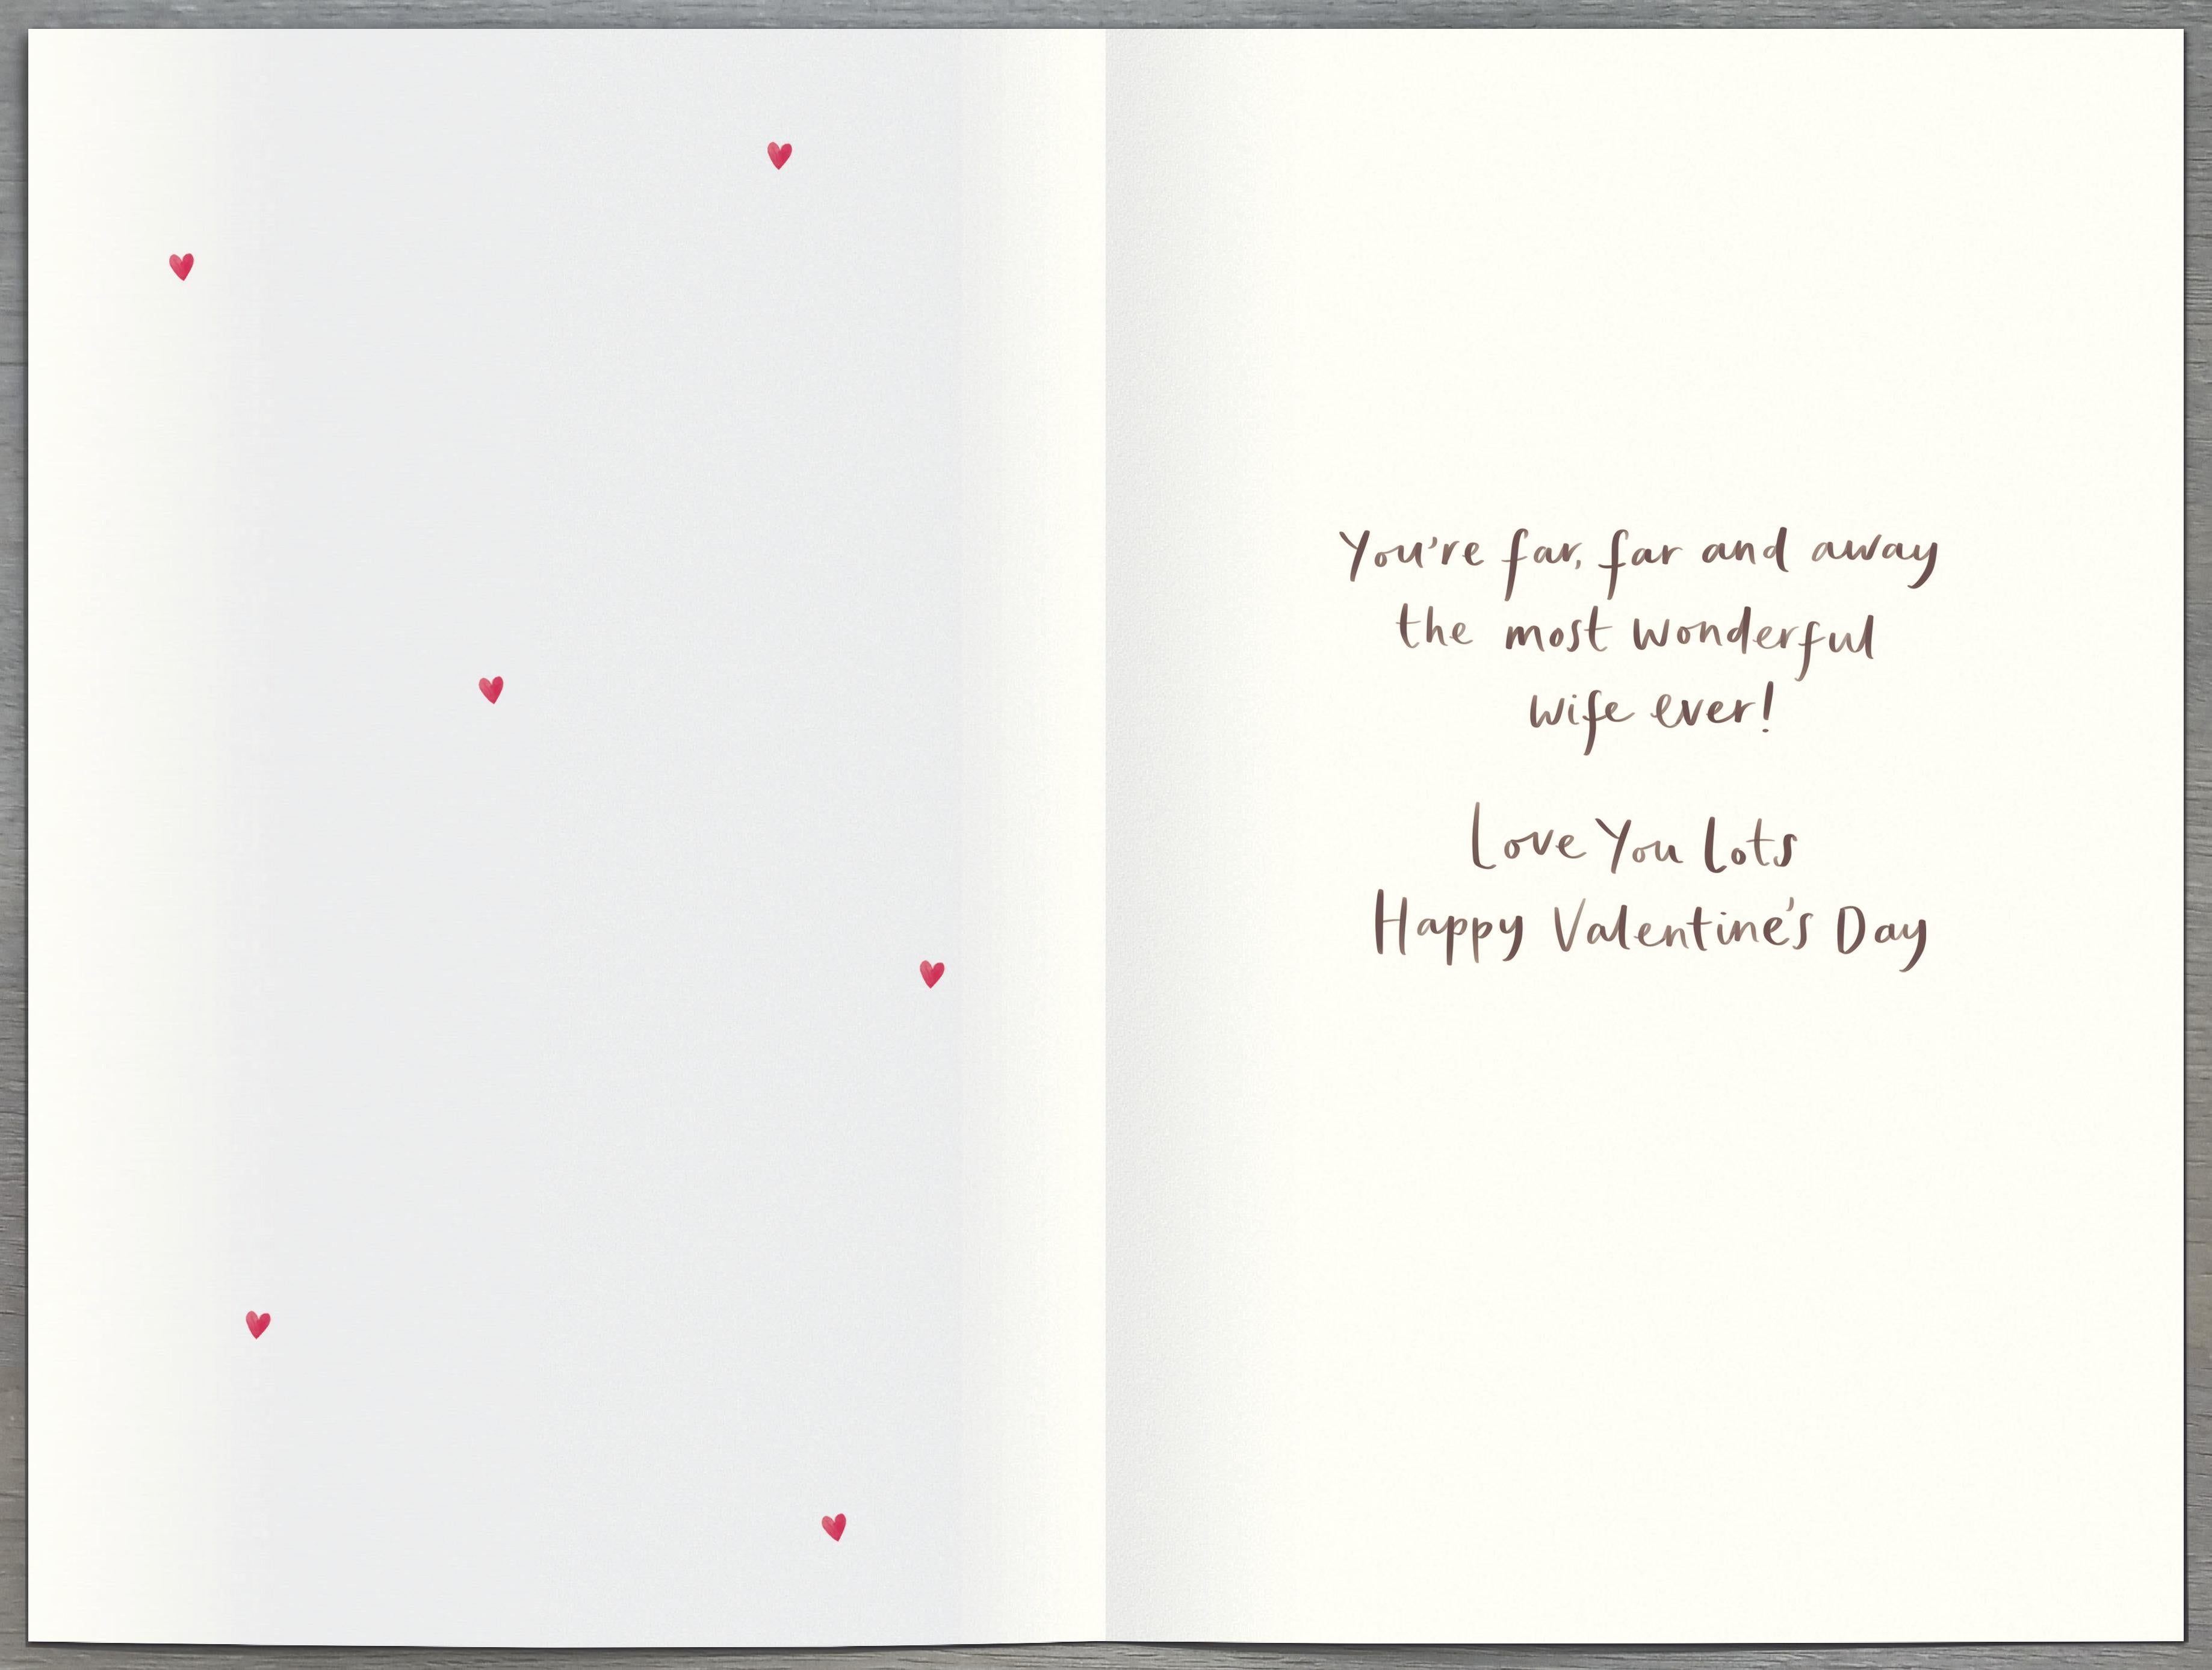 You're far, far and away
the most wonderful
wife ever!
Love You Lots
Happy Valentine's Day